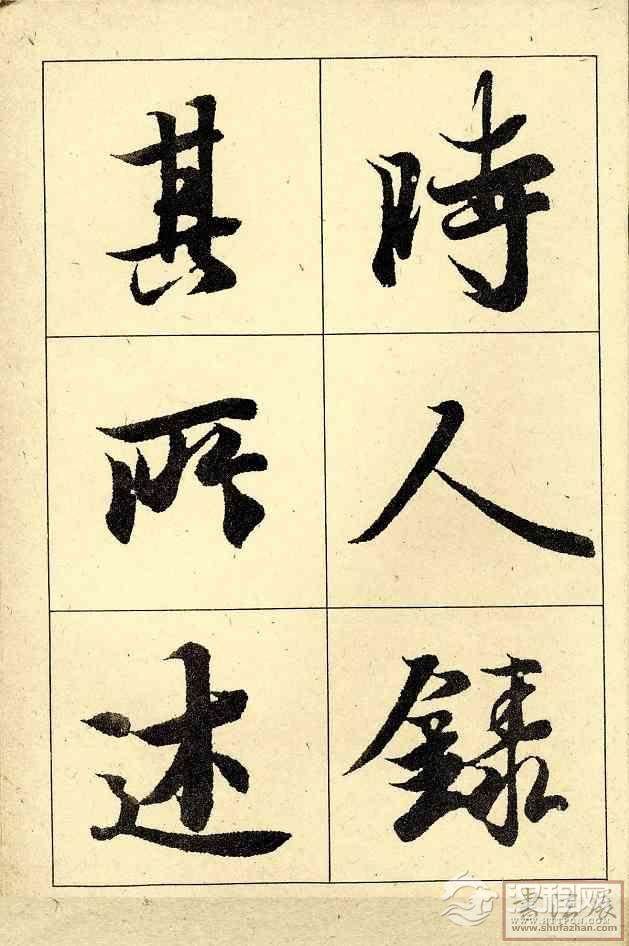 時人錄
其所述
www.shufazhan.com